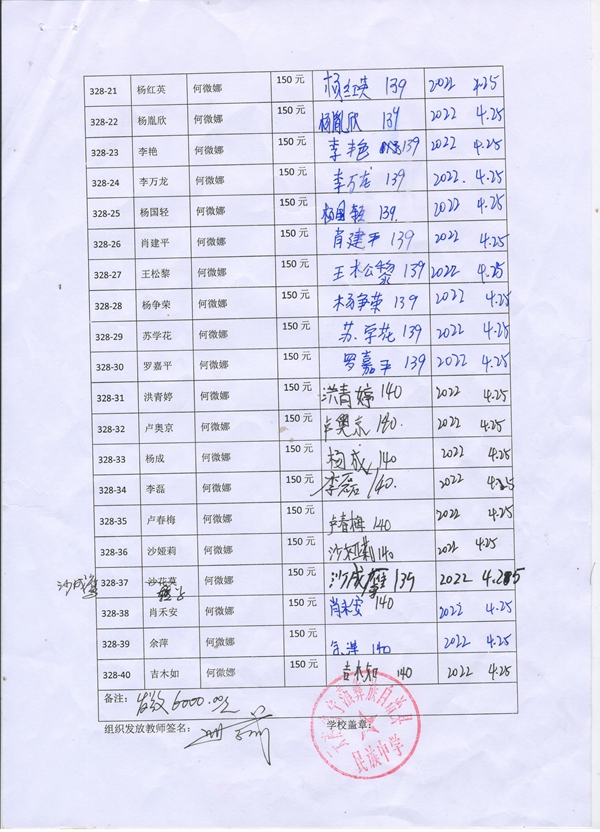 328-21 杨红英 何微娜 150 元 杨红英 139 2022 4.25
328-22 杨胤欣 何微娜 150 元 杨胤欣 139 2022 4.25
328-23 李艳 何微娜 150 元 李艳 139 2022 4.25
328-24 李万龙 何微娜 150 元 李万龙 139 2022. 4.25
328-25 杨国轻 何微娜 150 元 杨国轻 139. 2022 4.25
328-26 肖建平 何微娜 150 元 肖建平 139 2022 4.25
328-27 王松黎 何微娜 150 元 王松黎 139 2022 4.25
328-28 杨争荣 何微娜 150 元 杨争荣 139 2022 4.25
328-29 苏学花 何微娜 150 元 苏学花 139 2022 4.25
328-30 罗嘉平 何微娜 150 元 罗嘉平 139 2022 4.25
328-31 洪青婷 何微娜 150 元 洪青婷 140 2022 4.25
328-32 卢奥京 何微娜 150 元 卢奥京 140. 2022 4.25
328-33 杨成 何微娜 150 元 杨成 140 2022 4.25
328-34 李磊 何微娜 150 元 李磊 140. 2022 4.25
328-35 卢春梅 何微娜 150 元 卢春梅 140 2022 4.25
328-36 沙娅莉 何微娜 150 元 沙娅莉 140 2022 4.25
328-37 沙花莫 何微娜 150 元 沙成 139 2022 4.25
328-38 肖禾安 何微娜 150 元 肖禾安 140 2022 4.25
328-39 余萍 何微娜 150 元 余萍 140 2022 4.25
328-40 吉木如 何微娜 150 元 吉木如 140 2022 4.25
备注： 6000.00元
组织发放教师签名： 学校盖章：
宁蒗彝族自治县
民族中学